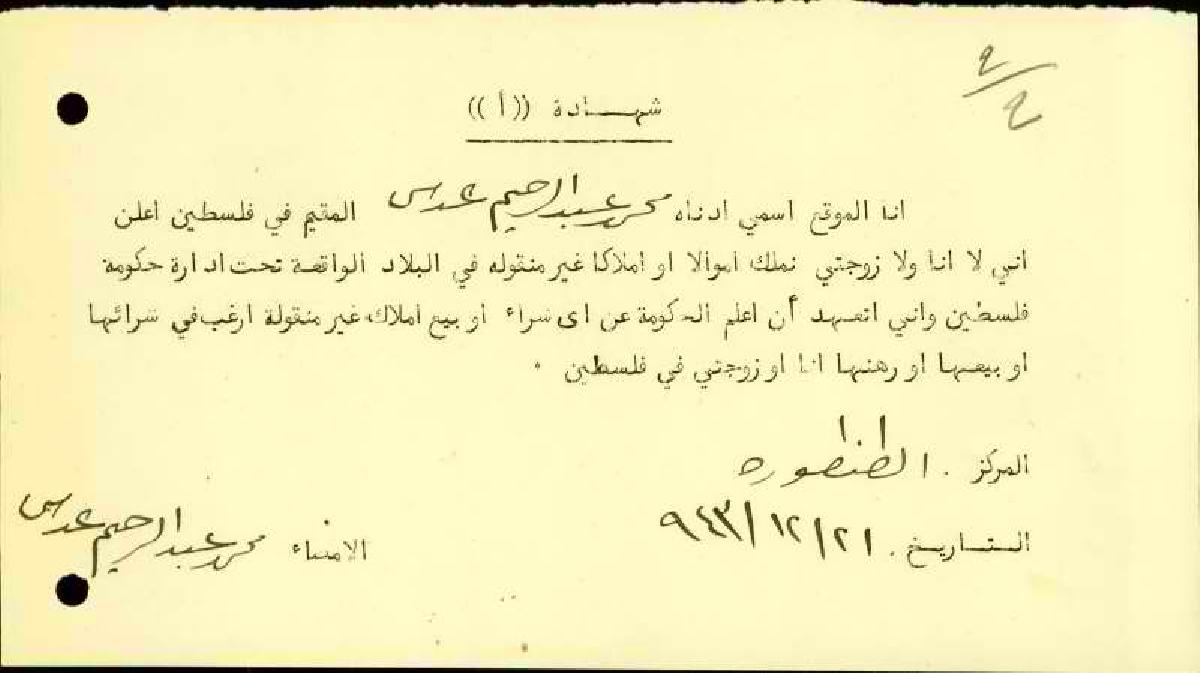 ٩/٢
شهادة ((أ))
انا الموقع اسمي ادناه محمد عبد الرحيم عدس المقيم في فلسطين اعلن
اني لا انا ولا زوجتي نملك اموالا او املاكا غير منقوله في البلاد الواقعة تحت ادارة حكومة
فلسطين واني اتعهد أن اعلم الحكومة عن اى شراء او بيع املاك غير منقولة ارغب في شرائها
او بيعها او رهنها انا او زوجتي في فلسطين .
المركز . الطنطوره
التاريخ . ٩٤٣/١٢/٢١
الامضاء محمد عبد الرحيم عدس